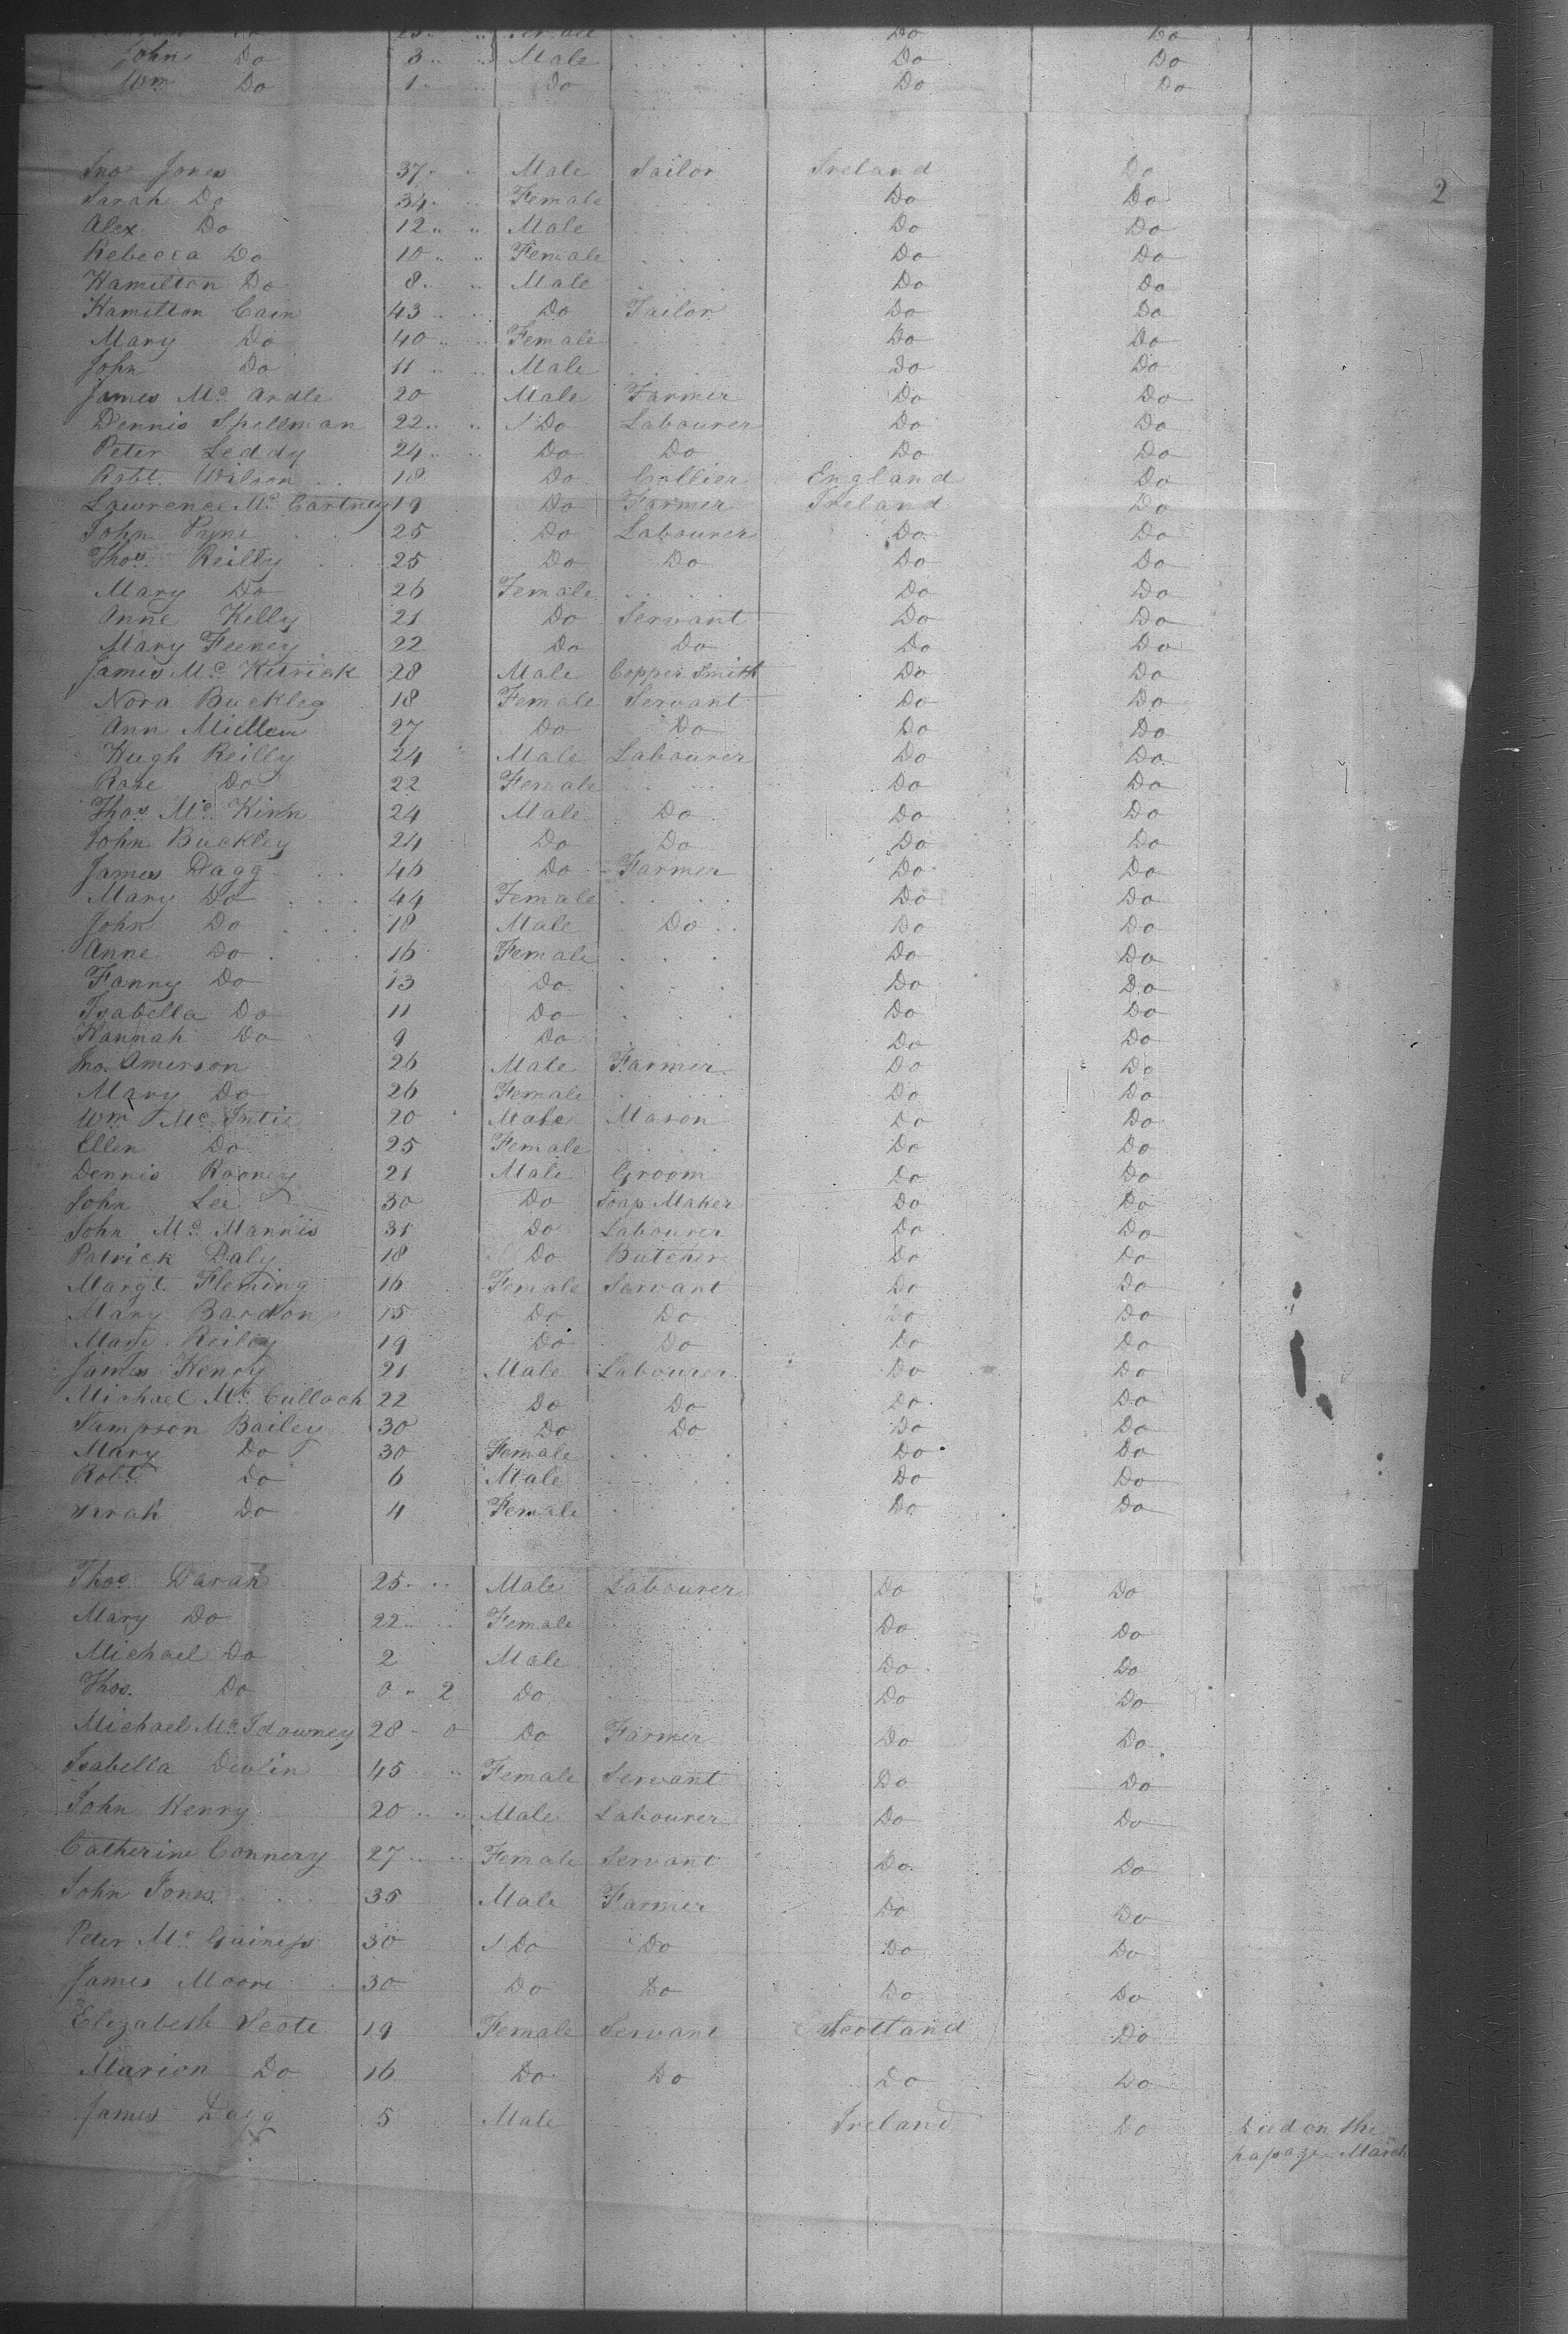 Do Do
John Do 3 Male Do Do
Wm Do 1 Do Do Do
2
Jno Jones 37 Male Sailor Ireland Do
Sarah Do 34 Female Do Do
Alex Do 12 Male Do Do
Rebecca Do 10 Female Do Do
Hamilton Do 8 Male Do Do
Hamilton Cain 43 Do Tailor Do Do
Mary Do 40 Female Do Do
John Do 11 Male Do Do
James Mc Ardle 20 Male Farmer Do Do
Dennis Spellman 22 Do Labourer Do Do
Peter Leddy 24 Do Do Do Do
Robt. Wilson 18 Do Collier England Do
Lawrence Mc Cartney 19 Do Farmer Ireland Do
John Pyne 25 Do Labourer Do Do
Thos. Reilly 25 Do Do Do Do
Mary Do 26 Female Do Do
Anne Kelly 21 Do Servant Do Do
Mary Feeney 22 Do Do Do Do
James Mc Kitrick 28 Male Copper Smith Do Do
Nora Buckley 18 Female Servant Do Do
Ann Mullen 27 Do Do Do Do
Hugh Reilly 24 Male Labourer Do Do
Rose Do 22 Female Do Do
Thos. Mc Kinn 24 Male Do Do Do
John Buckley 24 Do Do Do Do
James Dagg 46 Do Farmer Do Do
Mary Do 44 Female Do Do
John Do 18 Male Do Do Do
Anne Do 16 Female Do Do
Fanny Do 13 Do Do Do
Isabella Do 11 Do Do Do
Hannah Do 9 Do Do Do
Jno. Amerson 26 Male Farmer Do Do
Mary Do 26 Female Do Do
Wm Mc Intie 20 Male Mason Do Do
Ellen Do 25 Female Do Do
Dennis Rooney 21 Male Groom Do Do
John Lee 30 Do Soap Maker Do Do
John Mc Mannis 31 Do Labourer Do Do
Patrick Daly 18 Do Butcher Do Do
Margt. Fleming 16 Female Servant Do Do
Mary Bardon 15 Do Do Do Do
Mary Reiley 19 Do Do Do Do
James Henry 21 Male Labourer Do Do
Michael Mc Culloch 22 Do Do Do Do
Sampson Bailey 30 Do Do Do Do
Mary Do 30 Female Do Do
Robt. Do 6 Male Do Do
Sarah Do 4 Female Do Do
Thos. Darah 25 Male Labourer Do Do
Mary Do 22 Female Do Do
Michael Do 2 Male Do Do
Thos. Do 0 " 2 Do Do Do
Michael Mc Idowney 28 - 0 Do Farmer Do Do
Isabella Devlin 45 Female Servant Do Do
John Henry 20 Male Labourer Do Do
Catherine Connery 27 Female Servant Do Do
John Jones 35 Male Farmer Do Do
Peter Mc Guiness 30 Do Do Do Do
James Moore 30 Do Do Do Do
Elizabeth Scott 19 Female Servant Scotland Do
Marion Do 16 Do Do Do Do
James Dagg 5 Male Ireland Do Died on the
passage March